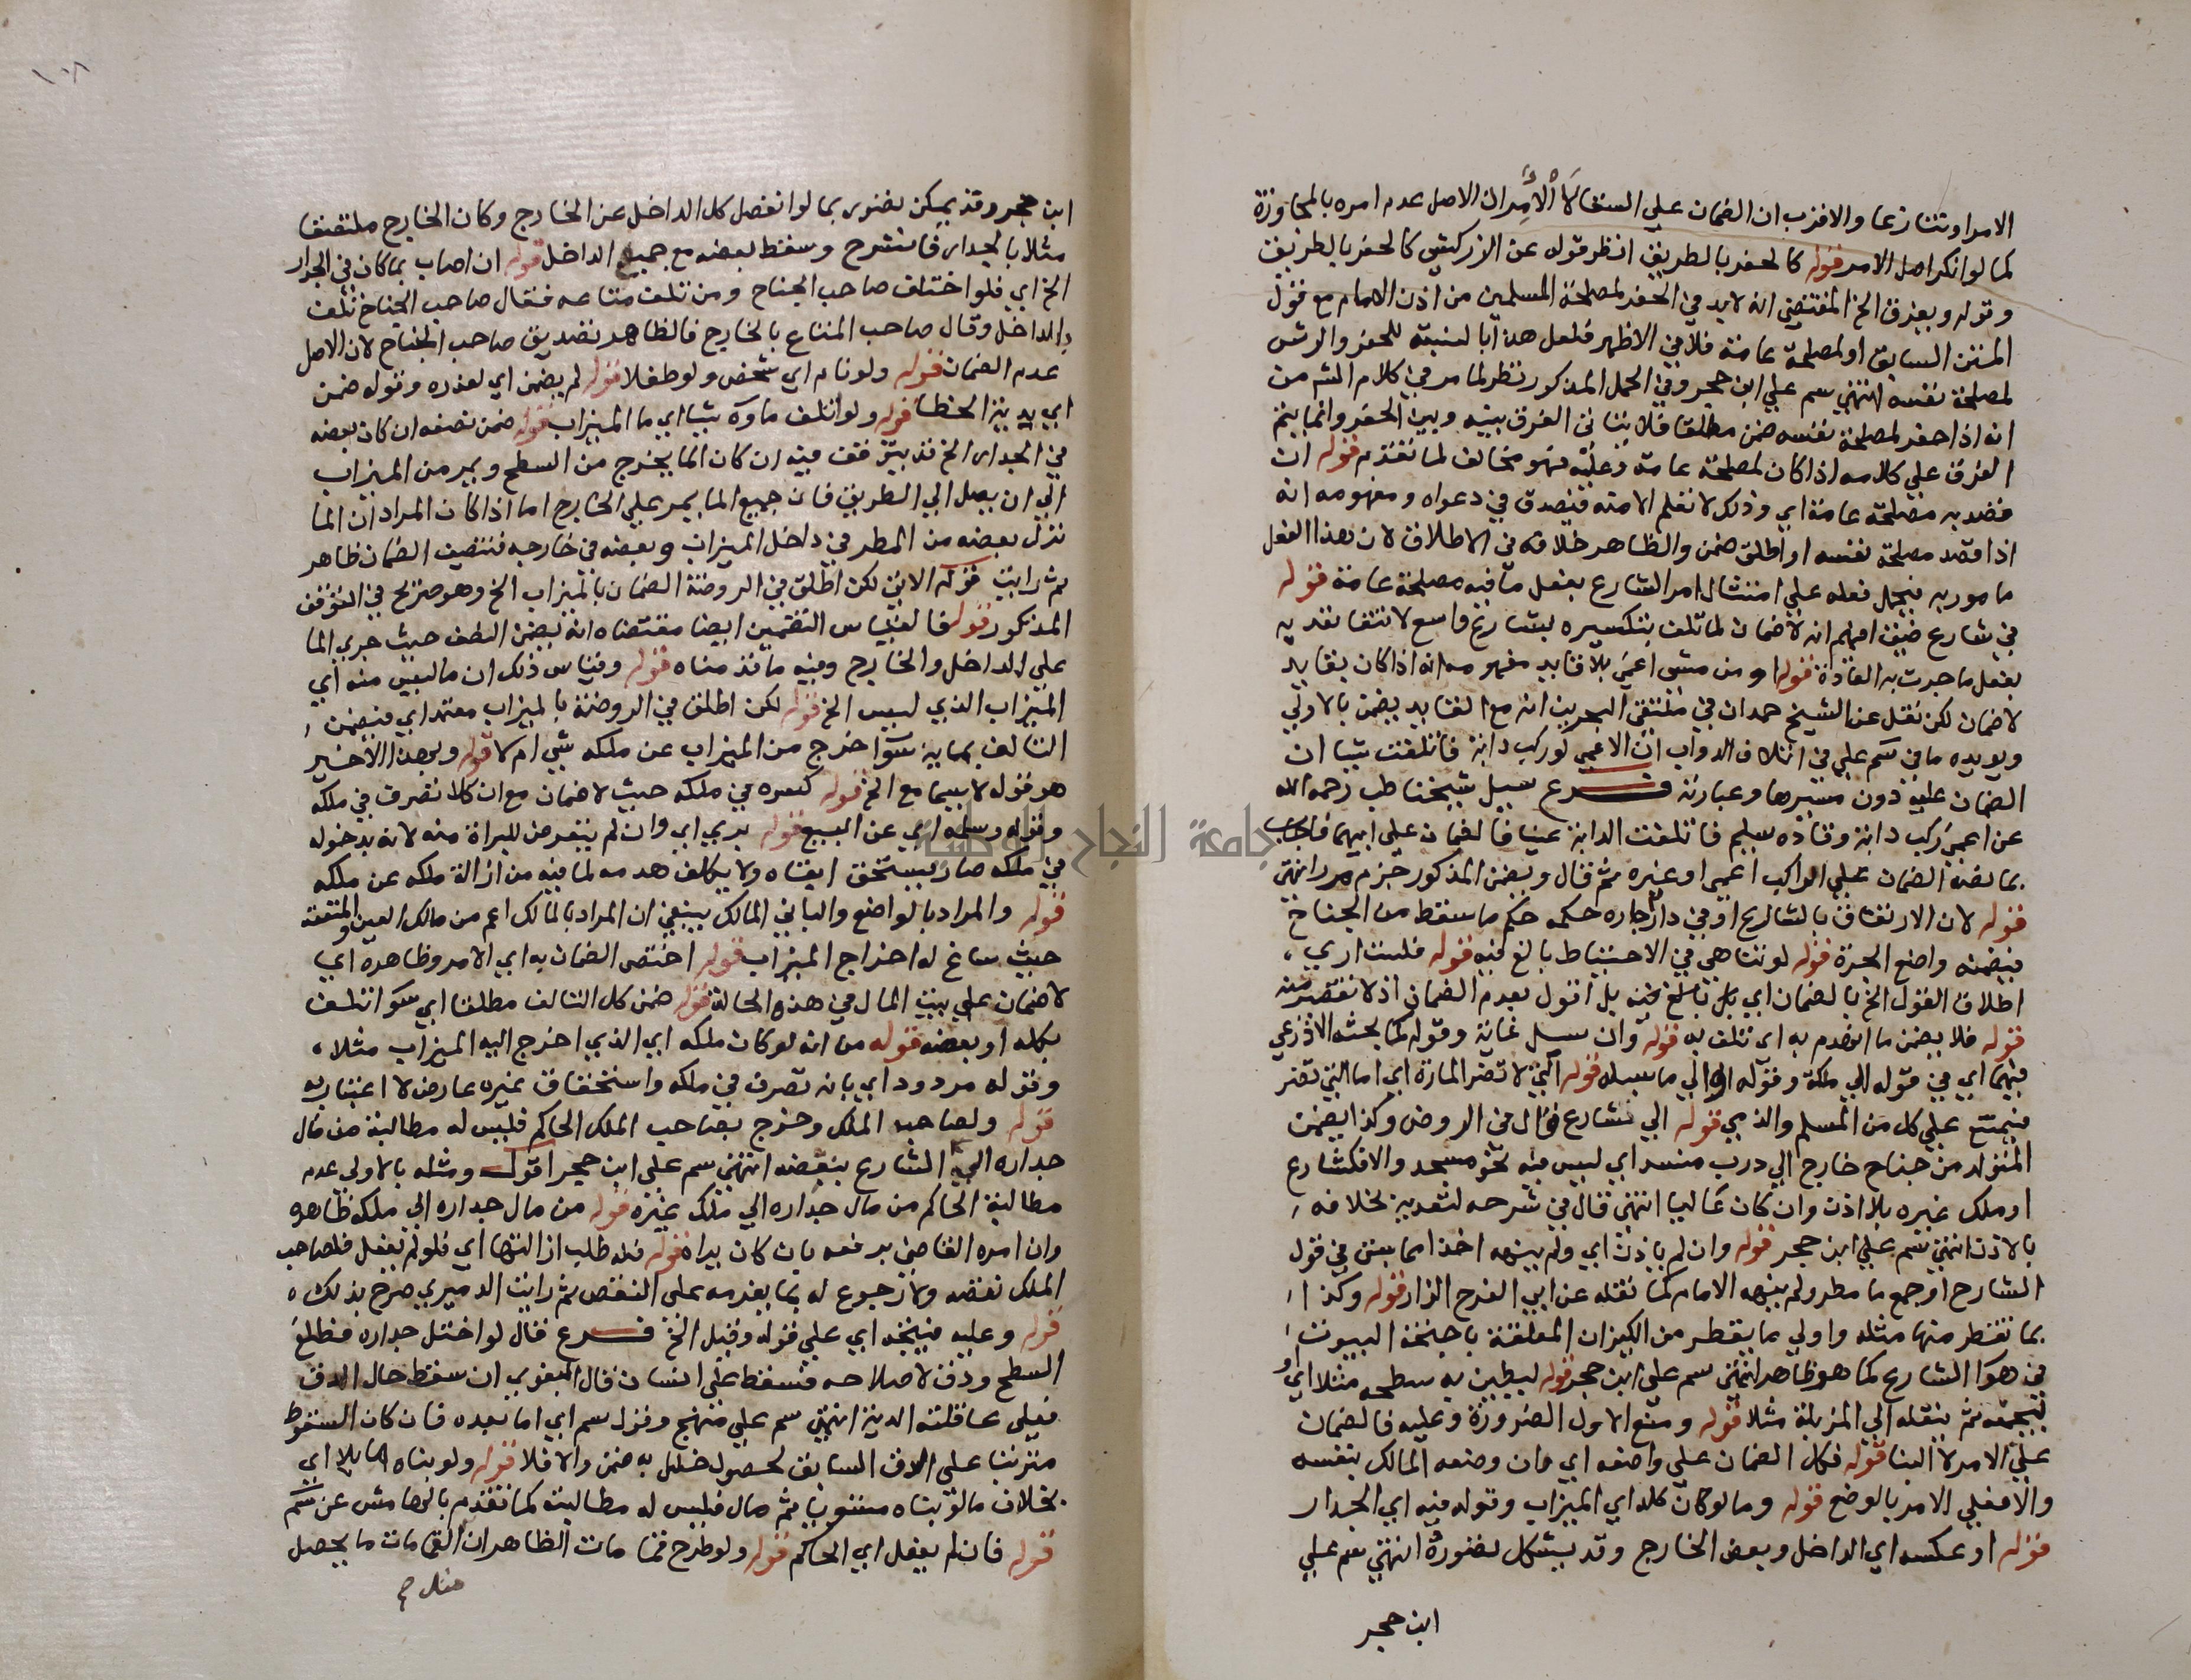 الامر او تنازعا والاقرب ان الضمان علي السقا لا الآمر لان الاصل عدم امره بالمجاوزة
كما لو انكر اصل الامر قوله كالحفر بالطريق انظر قوله عن الزركشي كالحفر بالطريق
وقوله ويفرق الخ المقتضي انه لا بد في الحفر لمصلحة المسلمين من اذن الامام مع قول
المتن السابق او لمصلحة عامة فلا في الاظهر فلعل هذا بالنسبة للحفر والرش
لمصلحة نفسه انتهي سم علي ابن حجر وفي الحمل المذكور نظر لما مر في كلام الشم من
انه اذا حفر لمصلحة نفسه ضمن مطلقا فلا يتاتي الفرق بينه وبين الحفر وانما يتم
الفرق علي كلامه اذا كان لمصلحة عامة وعليه فهو مخالف لما تقدم قوله ان
قصد به مصلحة عامة اي وذلك لا نعلم الا منه فيصدق في دعواه ومفهومه انه
اذا قصد مصلحة نفسه او اطلق ضمن والظاهر خلافه في الاطلاق لان هذا الفعل
مامور به فيحمل فعله علي امتثال امر الشارع بفعل ما فيه مصلحة عامة قوله
في شارع ضيق افهم انه لا ضمان لما تلف بتكسيره بشارع واسع لانتفا تعديه
بفعل ما جرت به العادة قوله او من مشي اعمي بلا قايد مفهومه انه اذا كان بقايد
لا ضمان لكن نقل عن الشيخ حمدان في ملتقي البحرين انه مع القايد يضمن بالاولي
ويويده ما في سم علي في اتلاف الدواب ان الاعمي لو ركب دابة فاتلفت شيا ان
الضمان عليه دون مسيرها وعبارته فرع سيل شيخنا طب رحمه الله
عن اعمي ركب دابة وقاده سليم فاتلفت الدابة عينا فالضمان علي ايهما فاجاب
بما نصه الضمان علي الراكب اعمي او غيره ثم قال وبضمن المذكور جزم مر انتهي
قوله لان الارتفاق بالشارع او في دار جاره حكمه حكم ما سقط من الجناح
فيضمنه واضع الجرة قوله لو تناهي في الاحتياط بالغ فيه قوله فلست اري
اطلاق القول الخ بالضمان اي بل تابلغ فيه بل اقول بعدم الضمان اذ لا تقصير منه
قوله فلا يضمن ما انصدم به اي تلف به قوله وان سبل غاية وقوله كما بحثه الاذرعي
فيهما اي في قوله الي ملكه وقوله او الي ما سبله قوله التي لا تضر المارة اي اما التي تضر
فيمتنع علي كل من المسلم والذمي قوله الي شارع قال في الروض وكذا يضمن
المتولد من جناح خارج الي درب منسد اي ليس فيه نحو مسجد والا فكشارع
او ملك غيره بلا اذن وان كان عاليا انتهي قال في شرحه لتعديه بخلافه
بالاذن انتهي سم علي ابن حجر قوله وان لم ياذن اي ولم ينهه اخذا مما يعني في قول
الشارح او جمع ما مطر ولم ينهه الامام كما نقله عن ابي الفرج الزاز قوله وكذا
بما تقطر منها مثله واولي ما يقطر من الكيزان المعلقة باجنحة البيوت
في هوا الشارع كما هو ظاهر انتهي سم علي ابن حجر قوله ليطين به سطحه مثلا اي او
ليجمعه ثم ينقله الي المزبلة مثلا قوله ومنع الاول الضرورة وعليه فالضمان
علي الامر لا البنا قوله فكل الضمان علي واضعه اي وان وضعه المالك بنفسه
والا فعلي الامر بالوضع قوله وما لو كان كله اي الميزاب وقوله فيه اي الجدار
قوله او عكسه اي الداخل وبعض الخارج وقد يشكل تصوره انتهي سم علي
ابن حجر
١٠٨
ابن حجر وقد يمكن تصوره بما لو انفصل كل الداخل عن الخارج وكان الخارج ملتصقا
مثلا بالجدار فانشرح وسقط بعضه مع جميع الداخل قوله ان اصاب بما كان في الجدار
الخ اي فلو اختلف صاحب الجناح ومن تلف متاعه فقال صاحب الجناح تلف
بالداخل وقال صاحب المتاع بالخارج فالظاهر تصديق صاحب الجناح لان الاصل
عدم الضمان قوله ولو نام اي شخص ولو طفلا قوله لم يضمن اي لعذره وقوله ضمن
اي بدية الخطا قوله ولو اتلف ماوه شيا اي ما الميزاب قوله ضمن نصفه ان كان بعضه
في الجدار الخ قد يتوقف فيه ان كان الما يخرج من السطح ويمر من الميزاب
الي ان يصل الي الطريق فان جميع الما يمر علي الخارج اما اذا كان المراد ان الما
نزل بعضه من المطر في داخل الميزاب وبعضه في خارجه فتنصيف الضمان ظاهر
ثم رايت قوله الاتي لكن اطلق في الروضة الضمان بالميزاب الخ وهو صريح في التوقف
المذكور قوله فالقياس التضمين ايضا مقتضاه انه يضمن النصف حيث جري الما
علي الداخل والخارج وفيه ما قدمناه قوله وقياس ذلك ان ما ليس منه اي
الميزاب الذي ليس الخ قوله لكن اطلق في الروضة بالميزاب معتمد اي فيضمن
التالف بمايه سوا خرج من الميزاب عن ملكه شي ام لا قوله وبهذا الاخير
هو قوله لا سيما مع الخ قوله كسره في ملكه حيث لا ضمان مع ان كلا تصرف في ملكه
وقوله وسلمه اي عن المبيع قوله بري اي وان لم يتعرض للبراة منه لانه بدخوله
في ملكه صار يستحق ابقاه ولا يكلف هدمه لما فيه من ازالة ملكه عن ملكه
قوله والمراد بالواضع والباني المالك ينبغي ان المراد بالمالك اعم من مالك العين والمنفعة
حيث ساغ له اخراج الميزاب قوله اختص الضمان به اي الامر وظاهره اي
لا ضمان علي بيت المال في هذه الحالة قوله ضمن كل التالف مطلقا اي سوا اتلف
بكله او بعضه قوله من انه لو كان ملكه اي الذي اخرج اليه الميزاب مثلا
وقوله مردود اي بانه تصرف في ملكه واستحقاق غيره عارض لا اعتبار به
قوله ولصاحب الملك وخرج بصاحب الملك الحاكم فليس له مطالبة من مال
جداره الي الشارع بنقضه انتهي سم علي ابن حجر اقول ومثله بالاولي عدم
مطالبة الحاكم من مال جداره الي ملك غيره قوله من مال جداره الي ملكه ظاهره
وان امره القاضي برفعه بان كان يراه قوله فله طلب ازالتها اي فلو لم يفعل فلصاحب
الملك نقضه ولا رجوع له بما يغرمه علي النقص ثم رايت الدميري صرح بذلك
قوله وعليه فيتجه اي علي قوله وقبل الخ فرع قال لو اختل جداره فطلع
السطح ودق لاصلاحه فسقط علي انسان قال البغوي ان سقط حال الدق
فعلي عاقلته الدية انتهي سم علي منهج وقول سم اي اما بعده فان كان السقوط
مترتبا علي الدق السابق لحصول خلل به ضمن والا فلا قوله ولو بناه مايلا اي
بخلاف ما لو بناه مستويا ثم مال فليس له مطالبته كما تقدم بالهامش عن سم
قوله فان لم يفعل اي الحاكم قوله ولو طرح قمامات الظاهر ان القمامات ما يحصل
جامعة النجاح الوطنية